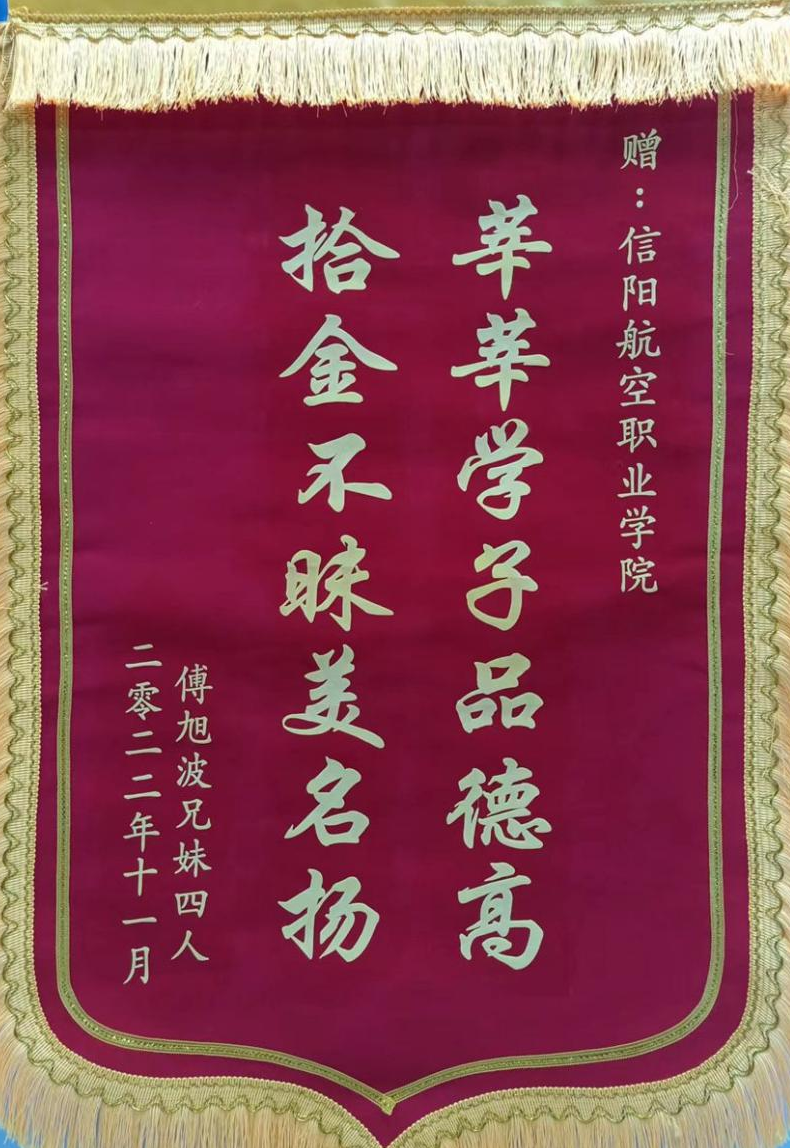 赠：信阳航空职业学院
莘莘学子品德高
拾金不昧美名扬
傅旭波兄妹四人
二零二二年十一月